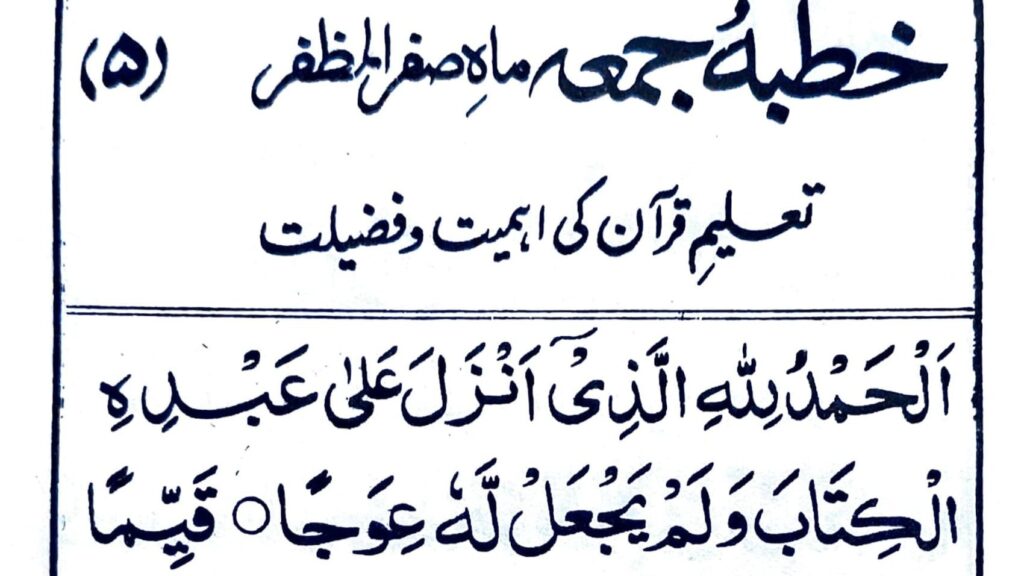 خطبۂ جمعہ ماہِ صفر المظفر (۵)
تعلیمِ قرآن کی اہمیت و فضیلت
اَلْحَمْدُ لِلّٰهِ الَّذِیْۤ اَنْزَلَ عَلٰی عَبْدِهِ
الْكِتَابَ وَلَمْ یَجْعَلْ لَّهٗ عِوَجًا ○ قَیِّمًا